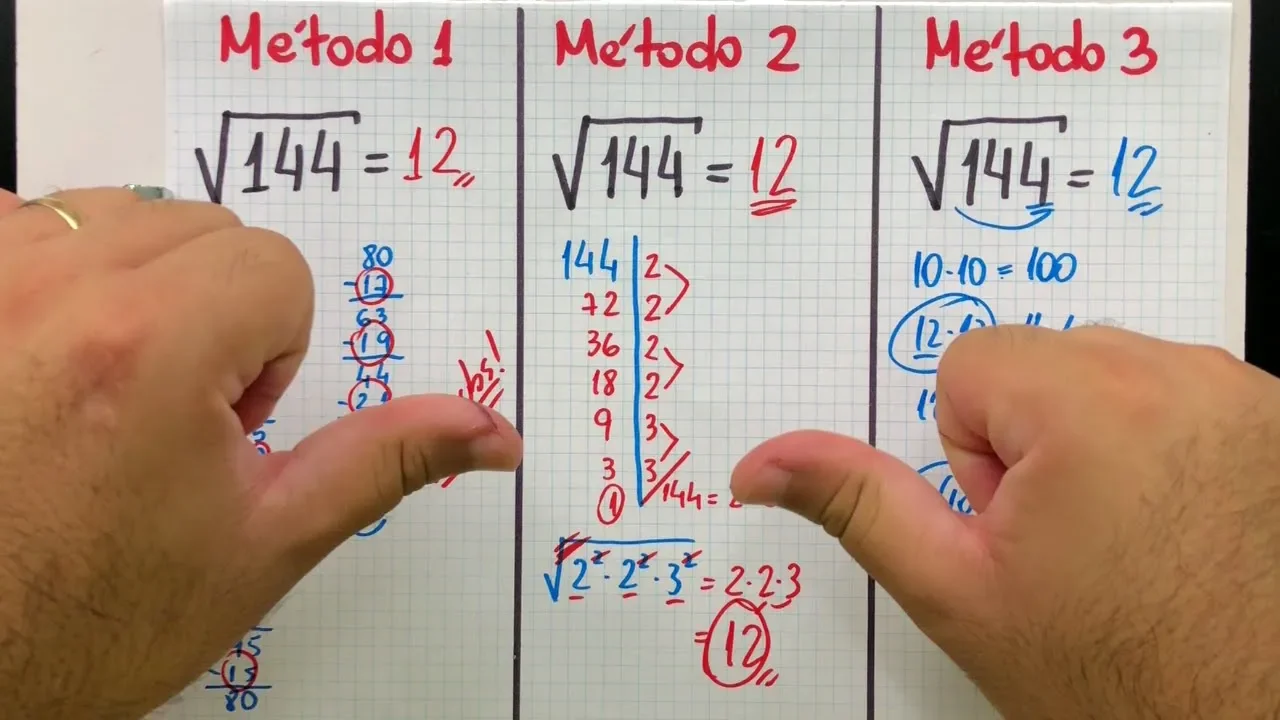 Método 1
√144 = 12
80
-17
63
-19
44
15
-13
80
Método 2
√144 = 12
144 | 2
72 | 2
36 | 2
18 | 2
9 | 3
3 | 3
1
144 =
√2²·2²·3² = 2·2·3
= 12
Método 3
√144 = 12
10·10 = 100